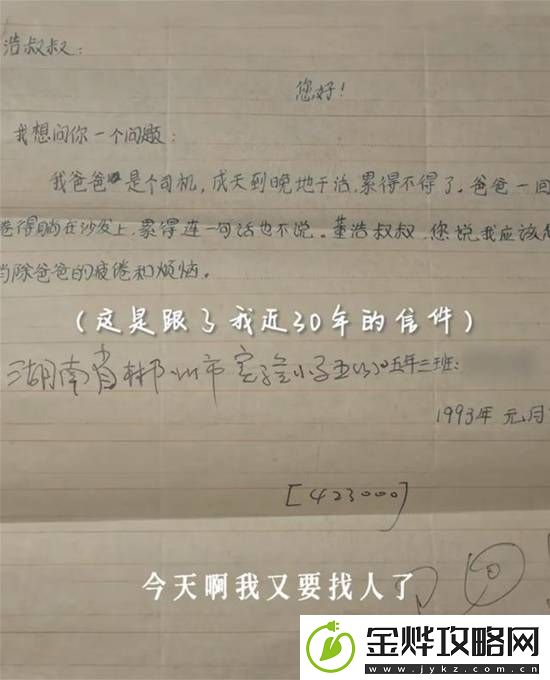 浩叔叔：
您好！
我想问你一个问题：
我爸爸是个司机，成天到晚地干活，累得不得了。爸爸一回
倦得躺在沙发上，累得连一句话也不说。董浩叔叔，您说我应该怎
消除爸爸的疲倦和烦恼。
（这是跟了我近30年的信件）
湖南省郴州市实验小学五年三班：
1993年 元月
[423000]
今天啊我又要找人了
金烨攻略网
www.jykz.com.cn